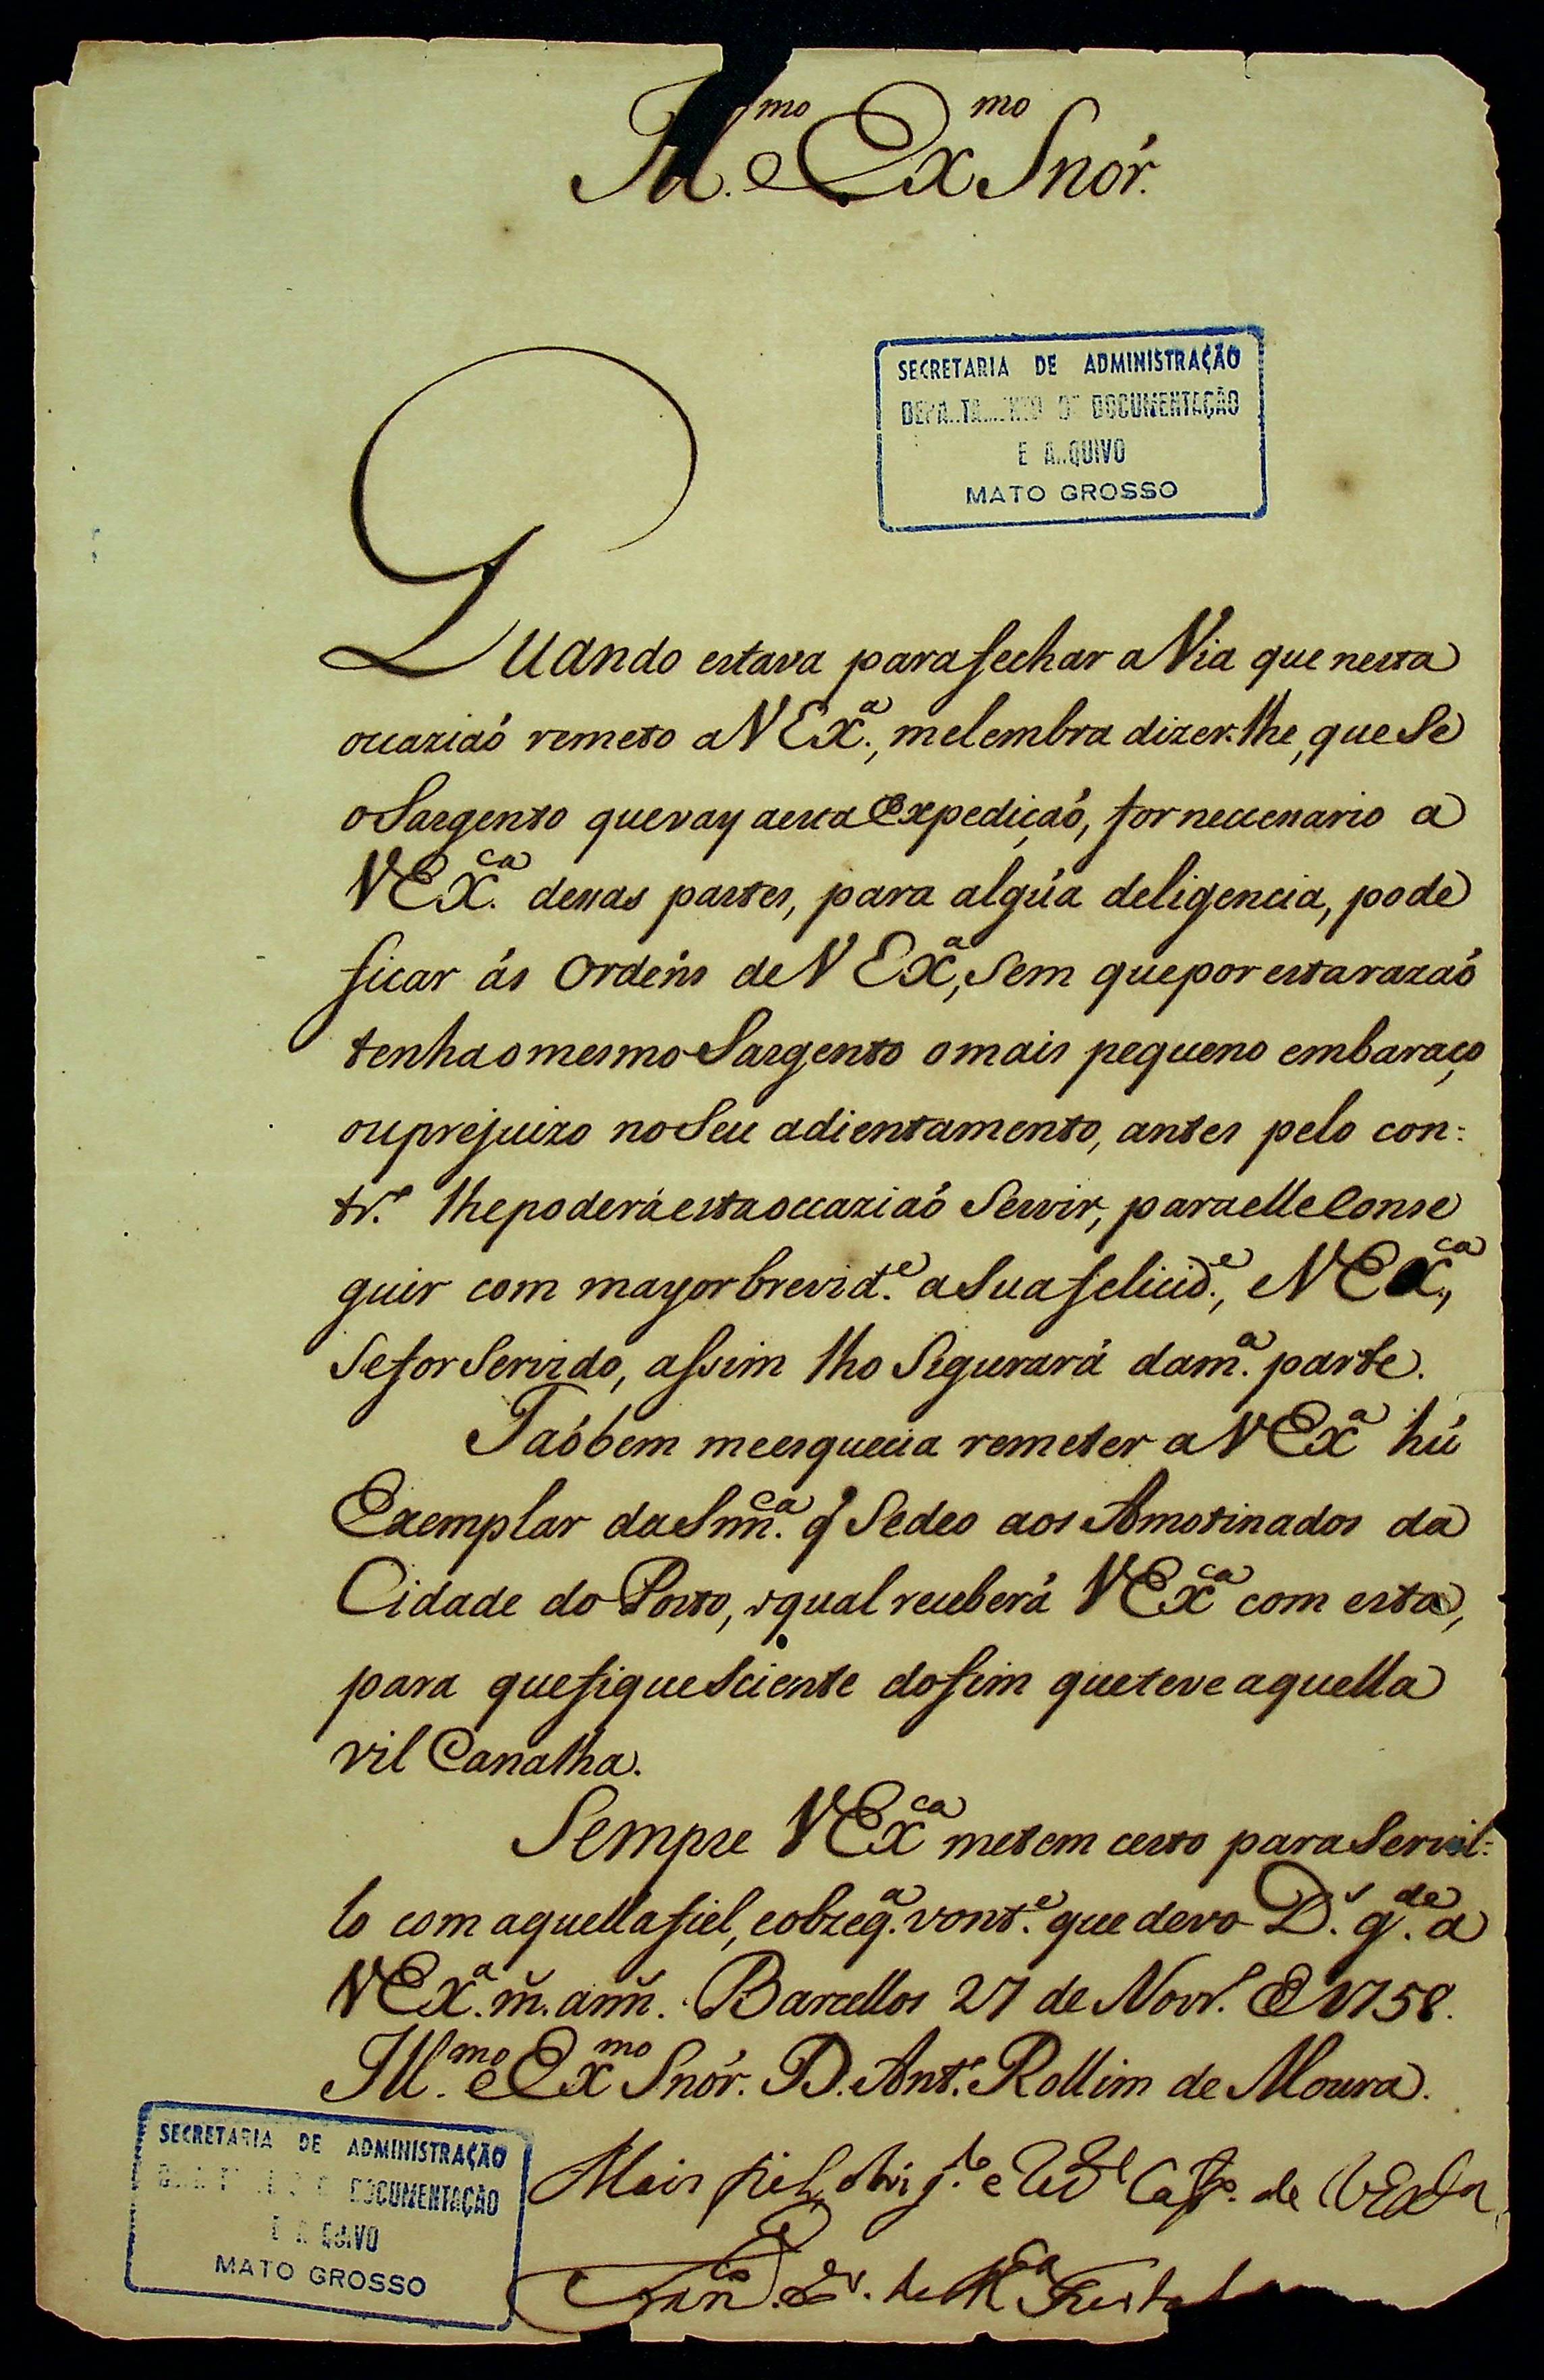 Ill.mo e Ex.mo Snór.
SECRETARIA DE ADMINISTRAÇÃO
DE DOCUMENTAÇÃO
E
MATO GROSSO
Quando estava para fechar a Via que nesta
occaziaó remeto a V Ex.ª, me lembra dizer-lhe, que se
o Sargento que vay a esta Expediçaó, for neccessario a
V Ex.ca dessas partes, para algúa deligencia, pode
ficar ás Ordéns de V Ex.ª, sem que por esta razaó
tenha o mesmo Sargento o mais pequeno embaraço
ou prejuizo no Seu adientamento, antes pelo con:
tr.º lhe poderá esta occaziaó Servir, para elle Conse
guir com mayor brevid.e a Sua felicid.e, e V Ex.ca,
Se for Servido, assim lho Segurará da m.ª parte.
Taóbem me esquecia remeter a V Ex.ª hú
Exemplar da Snn.ca q̃ Se deo aos Amotinados da
Cidade do Porto, o qual receberá V Ex.ca com esta,
para que fique Sciente do fim que teve aquella
vil Canalha.
Sempre V Ex.ca me tem certo para Servil:
lo com aquella fiel, e obzeq.ª vont.e que devo D.s g.de a
V Ex.ª m̃. anñ. Barcellos 27 de Novr.º de 1758.
Ill.mo e Ex.mo Snór. D. Ant.º Rollim de Moura.
SECRETARIA DE ADMINISTRAÇÃO
DOCUMENTAÇÃO
MATO GROSSO
Mais fiel, obrig.do e de V Ex.ca